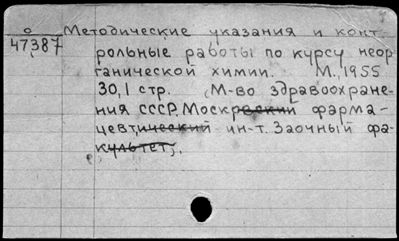 о Методические указания и конт
47387 рольные работы по курсу неор
ганической химии. М., 1955
30,1 стр. М-во здравоохране-
ния СССР. Московский фарма-
цевтический ин-т. Заочный фа-
культет.